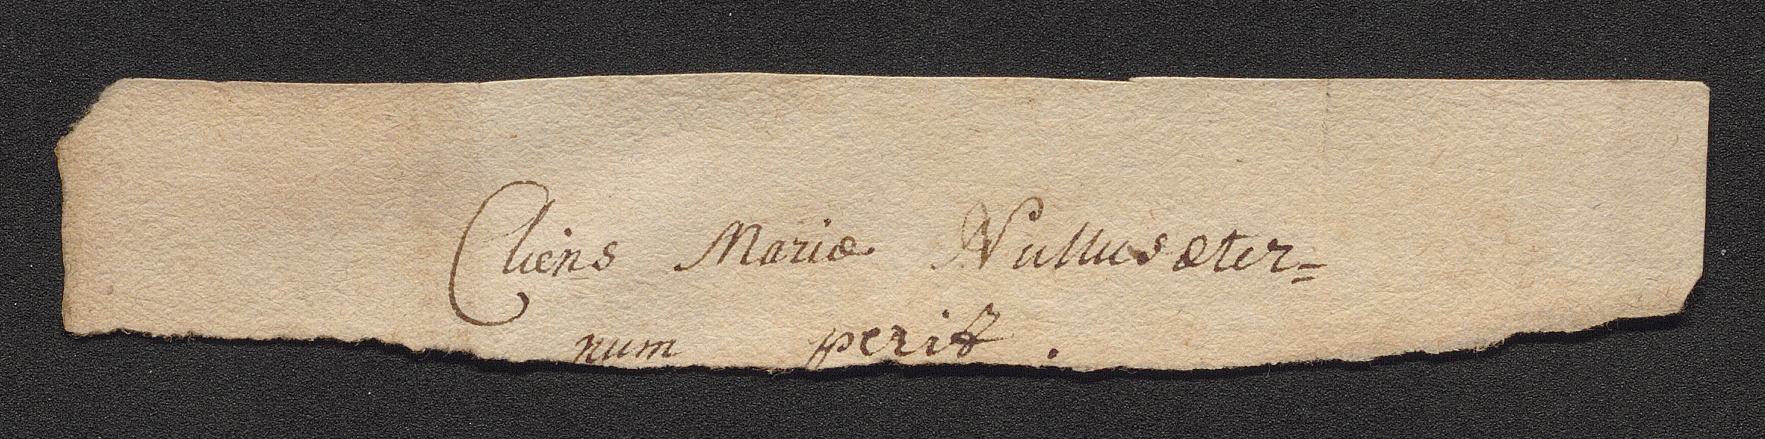 Cliens Mariæ Nullus æter=
num perit.